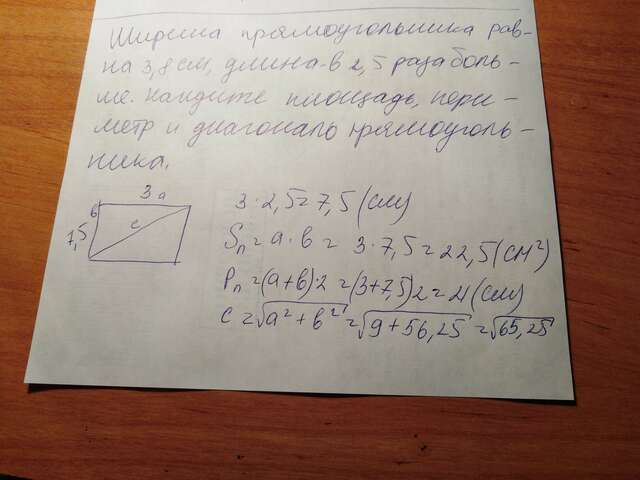 Ширина прямоугольника рав-
на 3,8 см, длина - в 2,5 раза боль-
ше. найдите площадь, пери-
метр и диагональ прямоуголь-
ника.
3 a
в
c
7,5
3 · 2,5 = 7,5 (см)
Sп = a · в = 3 · 7,5 = 22,5 (см²)
Pп = (a + в) · 2 = (3 + 7,5) 2 = 21 (см)
c = √a² + в² = √9 + 56,25 = √65,25